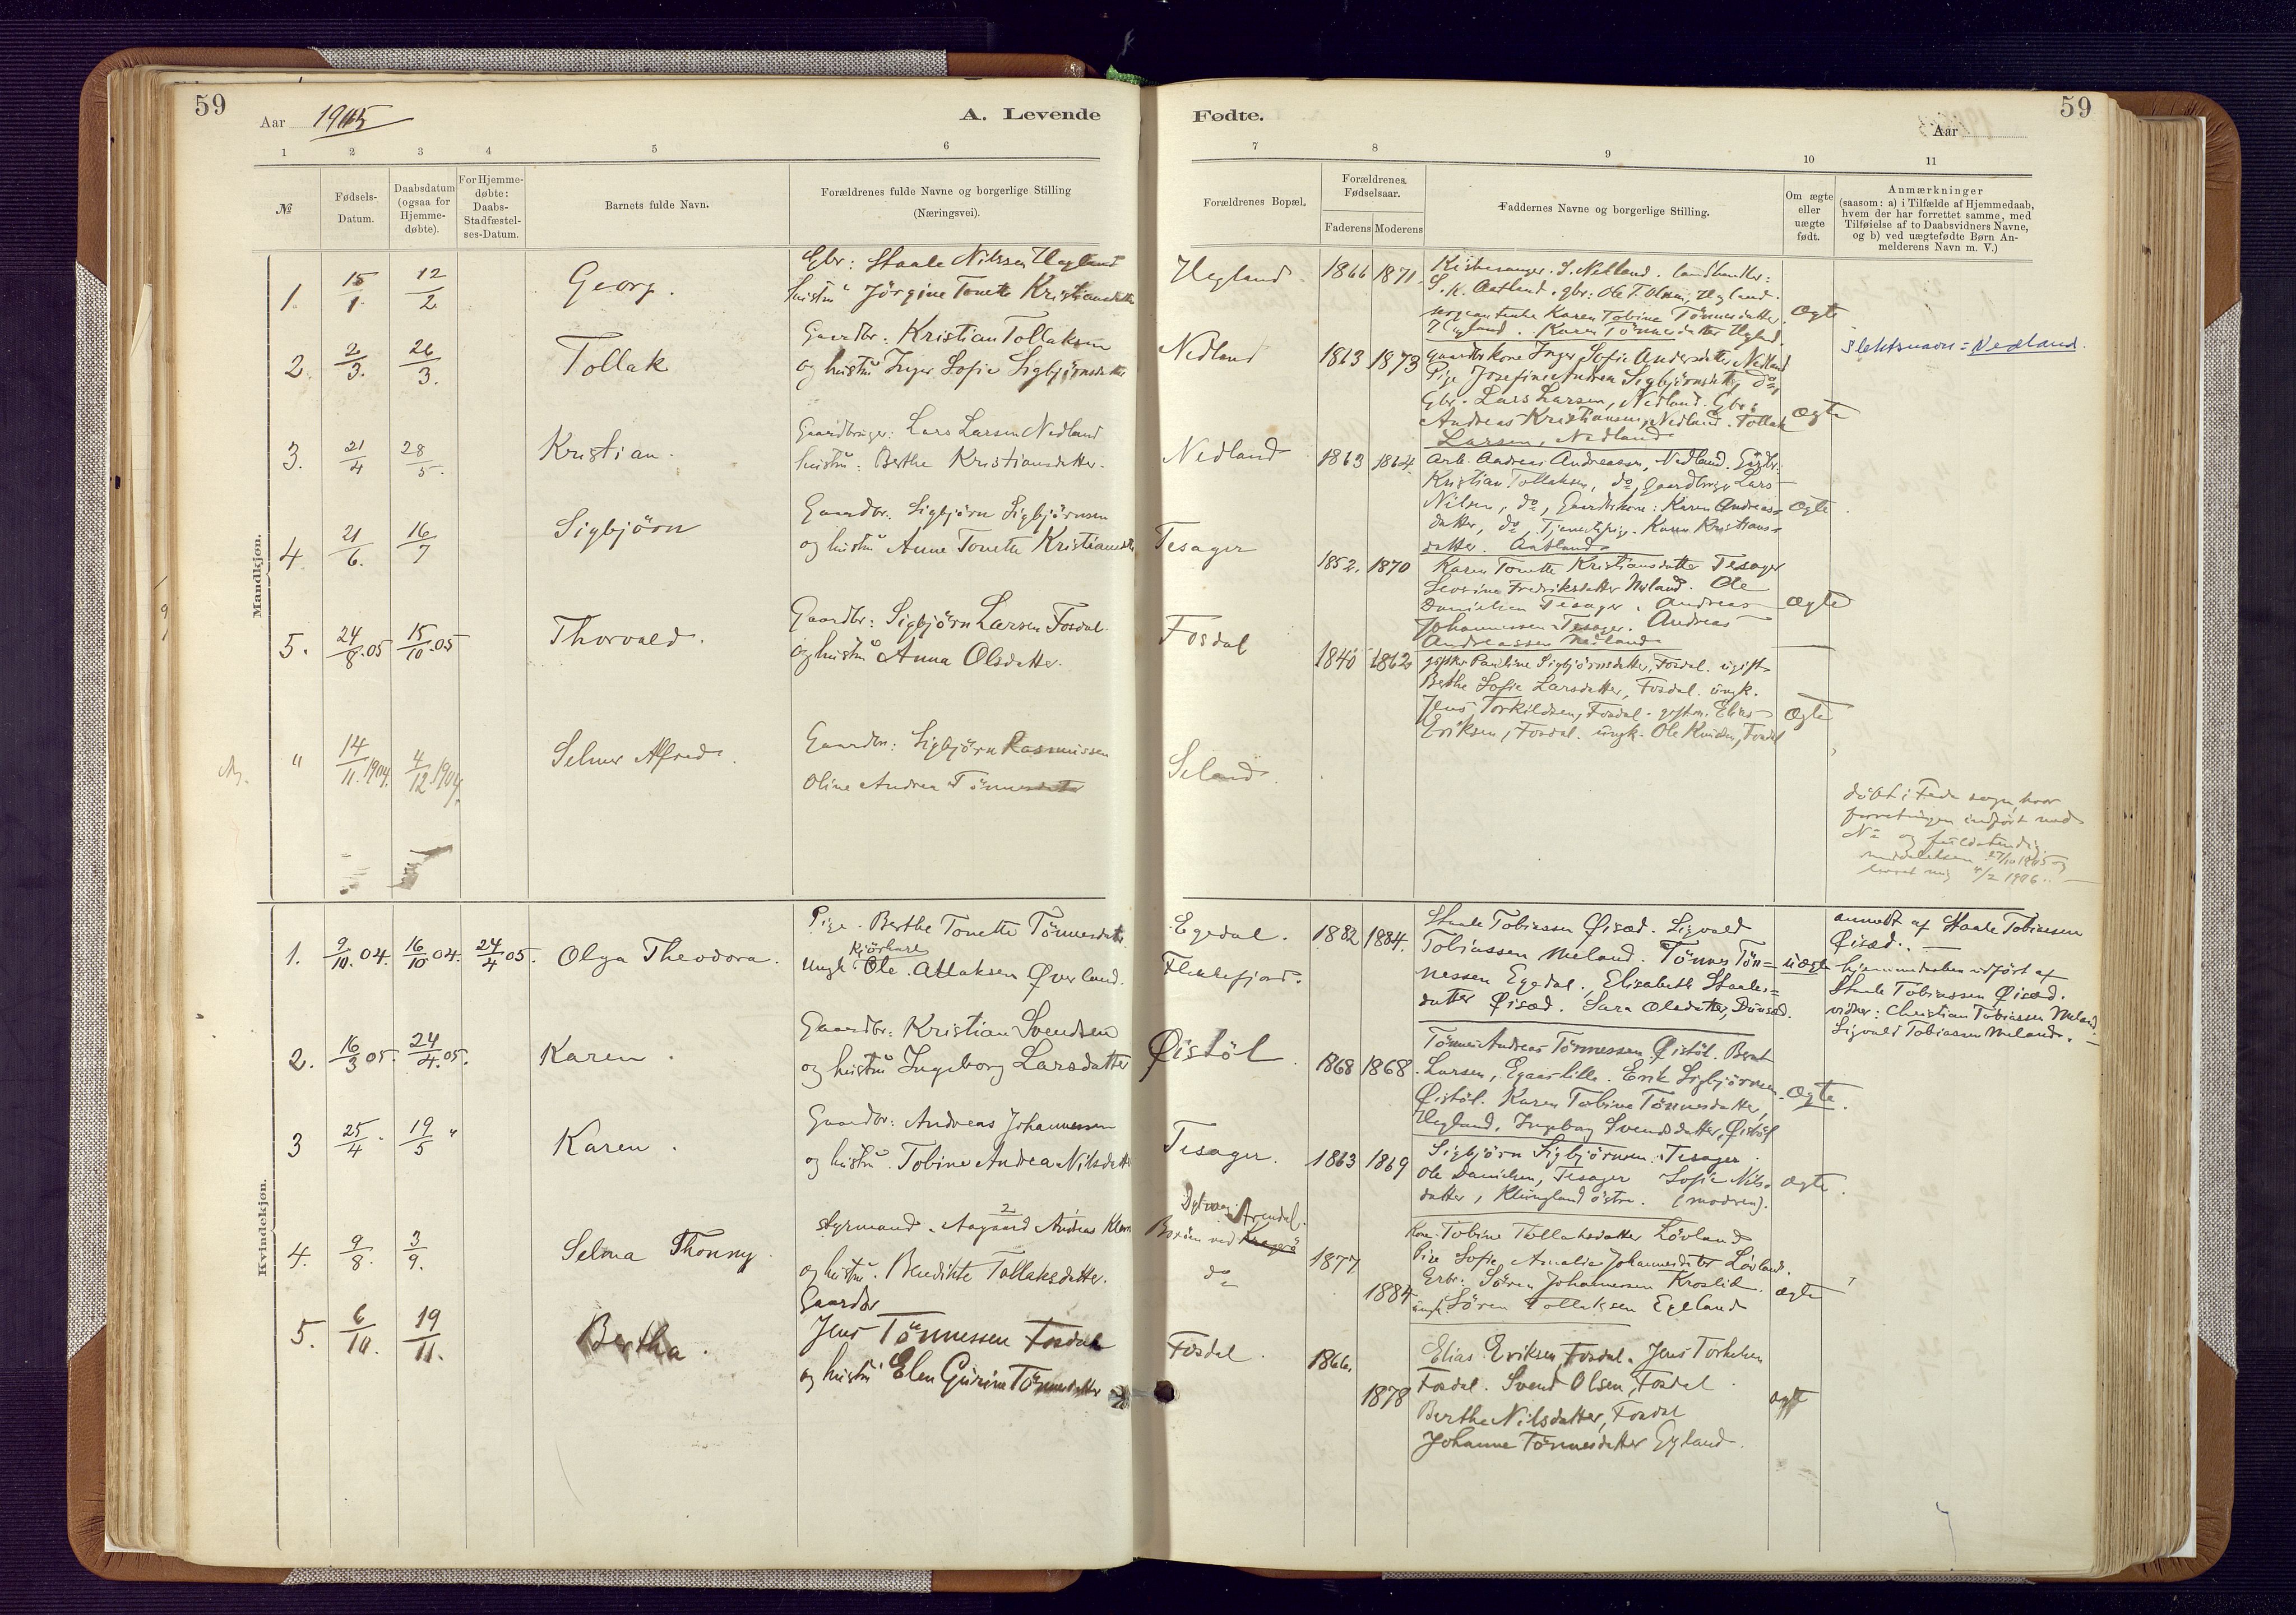 59
Aar 1905
A. Levende
1 2 3 4 5 6
№
Fødsels-
Datum.
Daabsdatum
(ogsaa for
Hjemme-
døbte).
For Hjemme-
døbte:
Daabs-
Stadfæstel-
ses-Datum.
Barnets fulde Navn.
Forældrenes fulde Navne og borgerlige Stilling
(Næringsvei).
Mandkjøn.
1. 15/1 12/2 Georg.
Gbr: Staale Nilssen Hegland
hustru Jörgine Tonette Kristiansdatter
2. 2/3. 26/3. Tollak
Gaardbr: Kristian Tollaksen
og hustru Inger Sofie Sigbjörnsdatter
3. 21/4 28/5. Kristian.
Gaardbruger: Lars Larsen Nedland
hustru: Berthe Kristiansdatter.
4. 21/6. 16/7 Sigbjörn
Gaardbr. Sigbjörn Sigbjörnsen
og hustru Anne Tonette Kristiansdtr
5. 24/8.05 15/10.05 Thorvald.
Gaardbr: Sigbjörn Larsen Fosdal
og hustru Anna Olsdatter.
" 14/11.1904. 4/12.1904. Selmer Alfred.
Gaardbr: Sigbjörn Rasmussen
Oline Andrea Tönnesdatter
Kvindekjøn.
1. 9/10.04. 16/10 04. 24/4 05. Olga Theodora.
Pige. Berthe Tonette Tönnesdatter
Kjörkarl
Ungk. Ole Atlaksen Øverland.
2. 16/3 05. 24/4.05. Karen.
Gaardbr: Kristian Svendsen
og hustru Ingeborg Larsdatter
3 25/4 " 19/5 " Karen.
Gaardbr: Andreas Johannessen
og hustru. Tobine Andrea Nilsdatter
4. 9/8. 3/9. Selma Thonny.
2
Styrmand. Aagaard Andreas
og hustru. Benedikte Tollaksdatter.
5. 6/10. 19/11. Bertha.
Gaardbr
Jens Tönnessen Fosdal
og hustru Elen Gurine Tönnesdatter
59
Fødte.
Aar
7 8 9 10 11
Forældrenes Bopæl.
Forældrenes
Fødselsaar.
Faderens Moderens
Faddernes Navne og borgerlige Stilling.
Om ægte
eller
uægte
født.
Anmærkninger
(saasom: a) i Tilfælde af Hjemmedaab,
hvem der har forrettet samme, med
Tilføielse af to Daabsvidners Navne,
og b) ved uægtefødte Børn An-
melderens Navn m. V.)
Hegland. 1866 1871.
Kirkesanger. S. Nedland. Landhandler:
S. K. Aatland. gbr: Ole T. Olsen, Hegland.
Karen Tobine Tönnesdatter.
Hegland. Karen Tönnesdatter Hegland. Ægte
Nedland 1863 1873
Gaardbrkone Inger Sofie Andersdatter Nedland
Pige Josefine Andrea Sigbjörnsdatter, do,
Gbr. Lars Larsen, Nedland. Gbr:
Andreas Kristiansen, Nedland. Tollak
Larsen, Nedland
Ægte
Slektsnavn = Nedland.
Nedland 1863 1864.
Arb. Andreas Andreassen, Nedland. Gaardbr.
Kristian Tollaksen, do, Gaardbruger Lars
Nilsen, do, Gaardbrkone: Karen Andreas-
datter, do, Tjenestepige. Karen Kristians-
datter. Aatland
Ægte.
Tesager 1852. 1870
Karen Tonette Kristiansdatter Tesager
Fredriksdatter Meland. Ole
Danielsen Tesager. Andreas
Johannessen Tesager. Andreas
Andreassen Nedland
Ægte
Fosdal 1840 1862
Pauline Sigbjörnsdatter, Fosdal. ugift
Berthe Sofie Larsdatter, Fosdal. ungk.
Jens Torkildsen, Fosdal. giftm. Elias
Eriksen, Fosdal. ungk. Ole Knudsen, Fosdal
Ægte
Seland.
döbt i Feda sogn, hvor
forretningen indført med
No og fuldstendig
meddelelsen 27/10 1905 og
4/2 1906.
Egedal. 1882 1884.
Flekkefjord.
Staale Tobiassen Øisæd. Sigvald
Tobiassen Meland. Tönnes Tön=
nessen Egedal. Elisabeth Staales=
datter Øisæd. Sara Olsdatter,
uægte
anmeldt af Staale Tobiassen
Øisæd. —
hjemmedaaben udført af
Staale Tobiassen Øisæd.
vidner: Christian Tobiassen Meland.
Sigvald Tobiassen Meland. —
Øistöl. 1868 1868.
Tönnes Andreas Tönnessen, Øistöl. Bernt
Larsen, Egaas lille. Erik Sigbjörnsen
Øistöl. Karen Tobine Tönnesdatter,
Hegland. Ingeborg Svendsdatter, Øistöl
Ægte.
Tesager. 1863 1869
Sigbjörn Sigbjörnsen. Tesager.
Ole Danielsen, Tesager Sofie Nils-
datter, Klungland östre. (modren).
Ægte.
Arendal.
Borøen ved Kragerø
do
1877.
1884
Kone Tobine Tollaksdatter Lövland
Pige Sofie Amalie Johannesdatter Lövland.
Grbr: Sören Johannessen Kroslid.
ungk. Sören Tollaksen Egeland
Ægte
Fosdal. 1866.
1878
Elias Eriksen, Fosdal. Jens Torkelsen
Fosdal. Svend Olsen, Fosdal.
Berthe Nilsdatter, Fosdal
Johanne Tönnesdatter Egland.
ægte